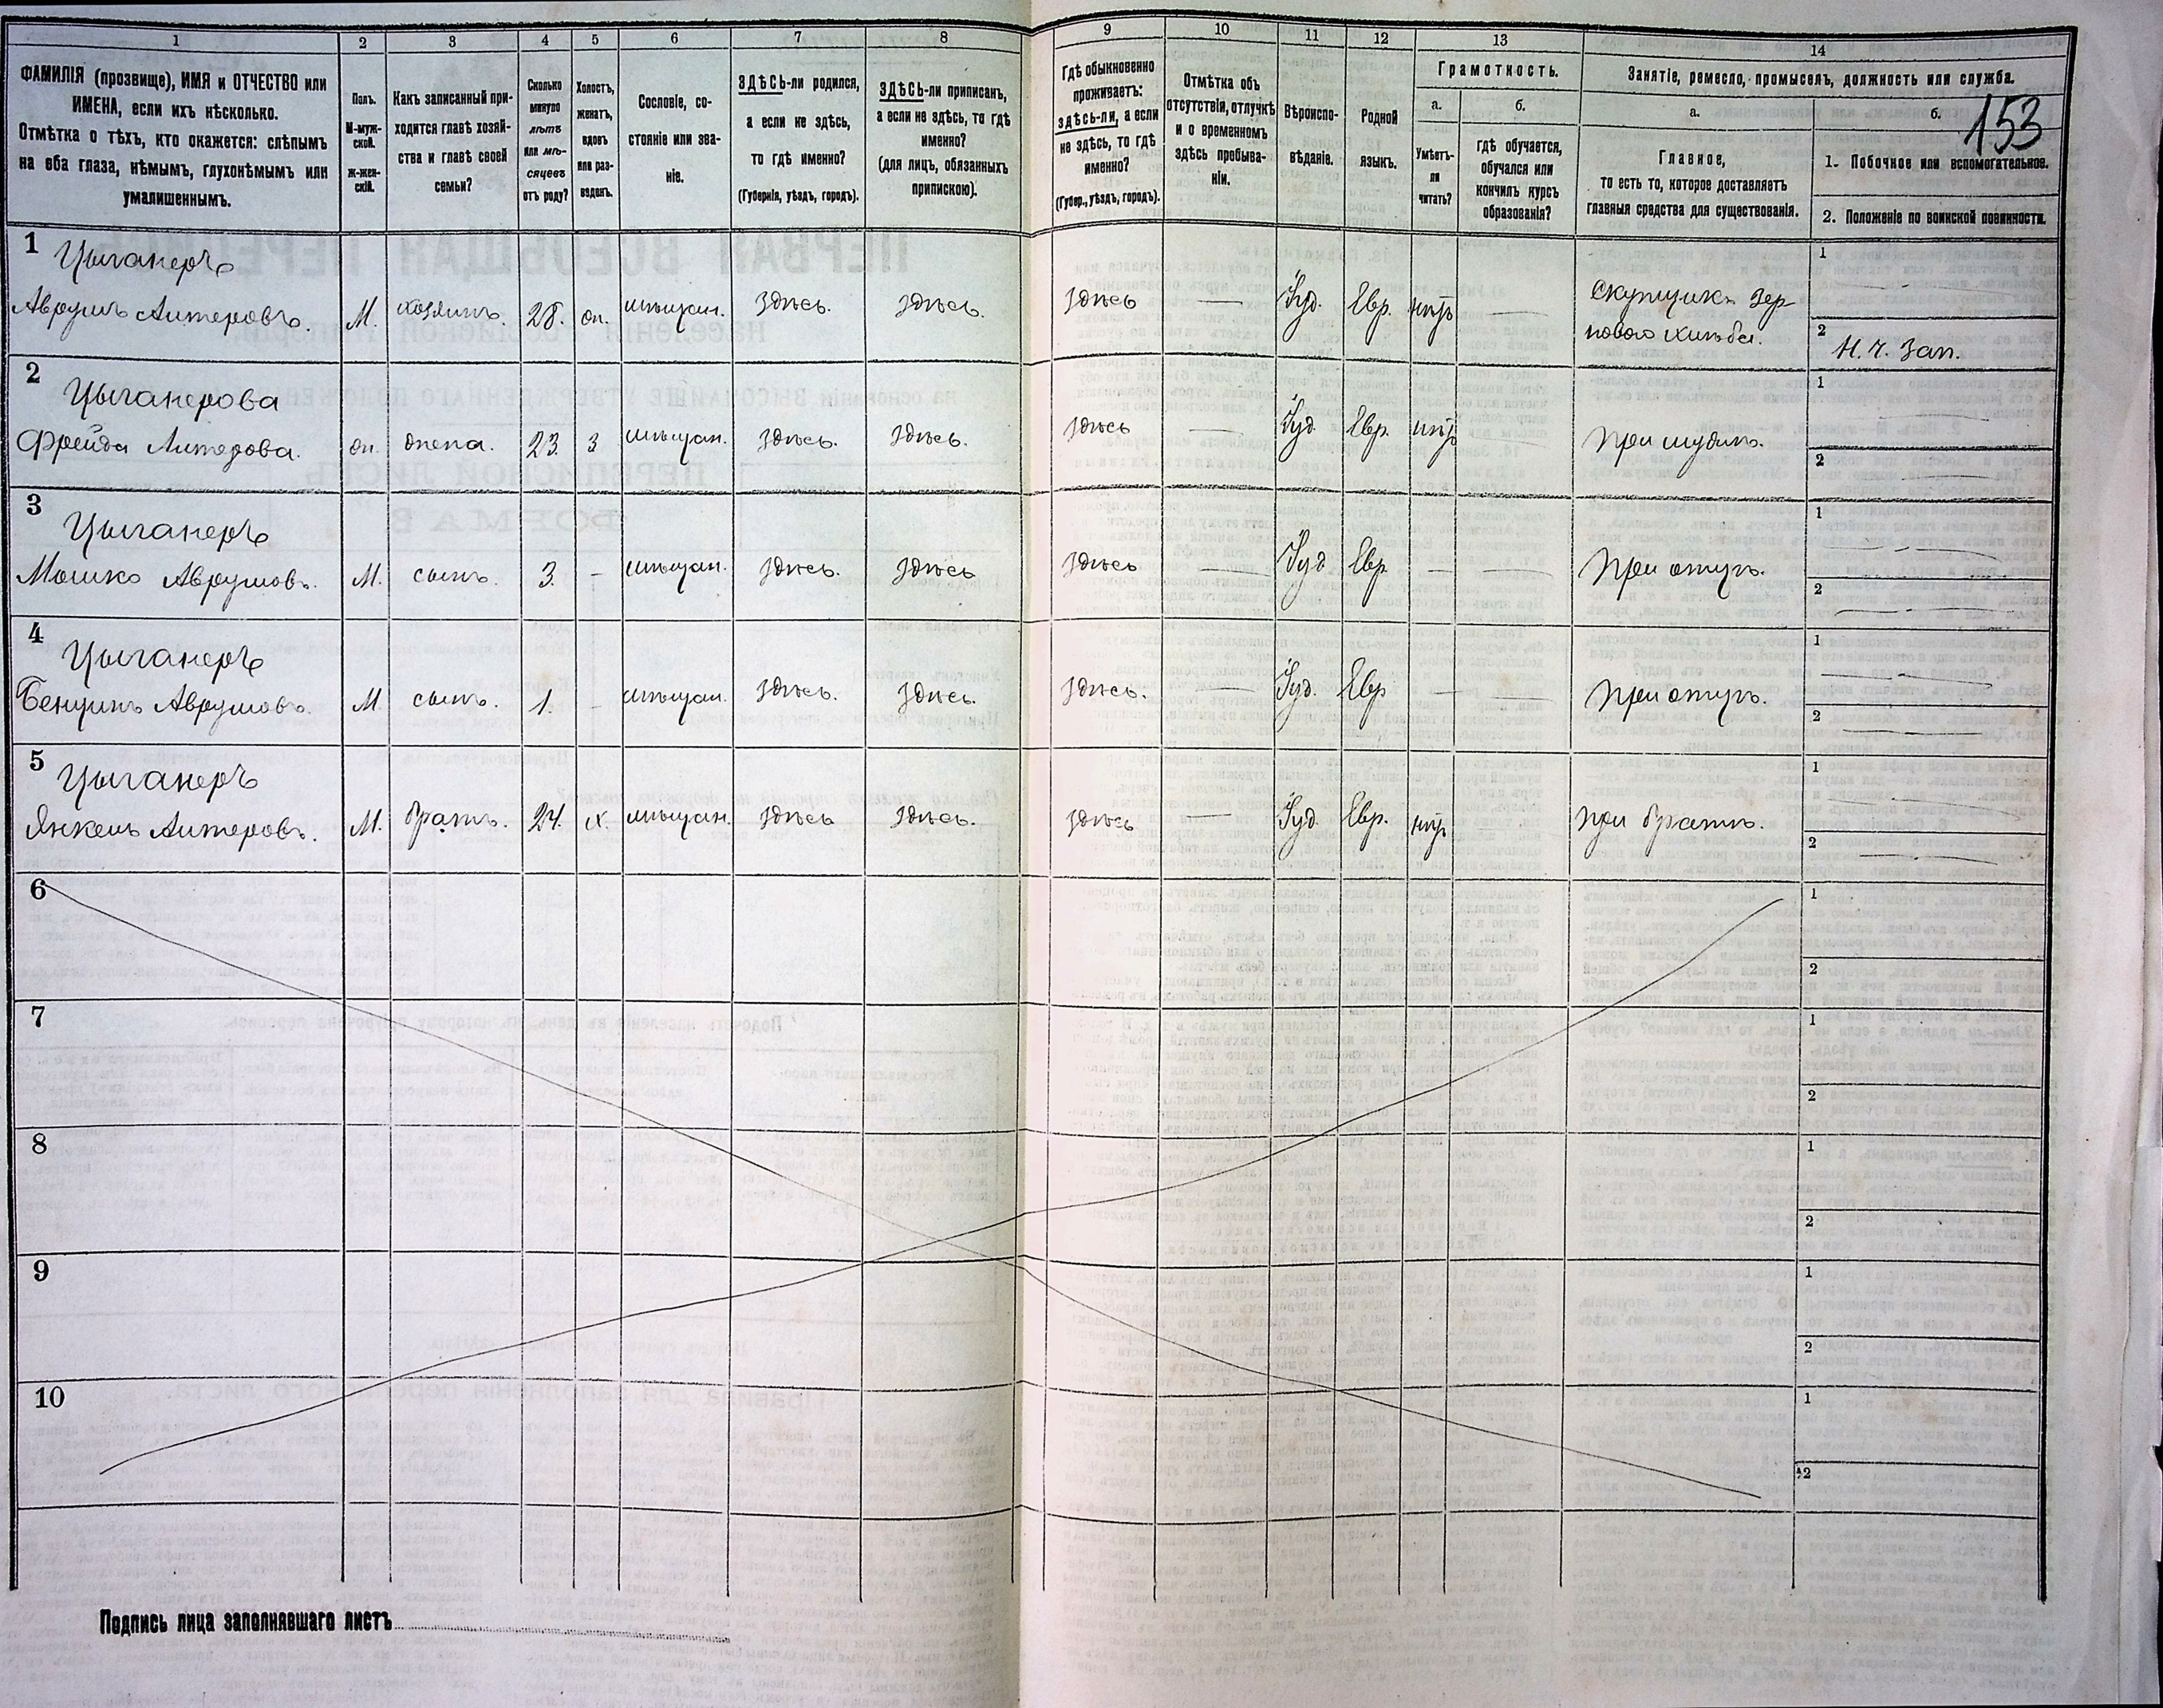 1 2 3 4 5 6 7 8 9 10 11 12 13 14
ФАМИЛІЯ (прозвище), ИМЯ и ОТЧЕСТВО или
ИМЕНА, если ихъ нѣсколько.
Отмѣтка о тѣхъ, кто окажется: слѣпымъ
на оба глаза, нѣмымъ, глухонѣмымъ или
умалишеннымъ.
Полъ.
М-муж-
ской.
Ж-жен-
скій.
Какъ записанный при-
ходится главѣ хозяй-
ства и главѣ своей
семьи?
Сколько
минуло
лѣтъ
или мѣ-
сяцевъ
отъ роду?
Холостъ,
женатъ,
вдовъ
или раз-
веденъ.
Сословіе, со-
стояніе или зва-
ніе.
ЗДѢСЬ-ли родился,
а если не здѣсь,
то гдѣ именно?
(Губернія, уѣздъ, городъ).
ЗДѢСЬ-ли приписанъ,
а если не здѣсь, то гдѣ
именно?
(для лицъ, обязанныхъ
припискою).
Гдѣ обыкновенно
проживаетъ:
здѣсь-ли, а если
не здѣсь, то гдѣ
именно?
(Губер., уѣздъ, городъ).
Отмѣтка объ
отсутствіи, отлучкѣ
и о временномъ
здѣсь пребыва-
ніи.
Вѣроиспо-
вѣданіе.
Родной
языкъ.
Грамотность.
а.
Умѣетъ-
ли
читать?
б.
гдѣ обучается,
обучался или
кончилъ курсъ
образованія?
Занятіе, ремесло, промыселъ, должность или служба.
а.
Главное,
то есть то, которое доставляетъ
главныя средства для существованія.
б.
153
1. Побочное или вспомогательное.
2. Положеніе по воинской повинности.
1 Цыганеръ
Аврумъ Антеровъ. М. хозяинъ. 28. жн. мѣщан. Здѣсь. Здѣсь. Здѣсь — Іуд. Евр. нѣтъ — Скупщикъ зер
новаго хлѣба.
1 —
2 Н. ч. Зап.
2 Цыганерова
Фрейда Антерова. жн. жена. 23. З мѣщан. Здѣсь. Здѣсь. Здѣсь — Іуд. Евр. нѣтъ при мужѣ.
1 —
2 —
3 Цыганеръ
Мошко Аврумовъ. М. сынъ. 3. — мѣщан. Здѣсь. Здѣсь Здѣсь — Іуд Евр. — — При отцѣ.
1 —
2 —
4 Цыганеръ
Бенцинъ Аврумовъ. М. сынъ. 1. — мѣщан. Здѣсь. Здѣсь. Здѣсь. — Іуд. Евр — — При отцѣ.
1 —
2 —
5 Цыганеръ
Янкель Антеровъ. М. братъ. 24. х. мѣщан. Здѣсь Здѣсь. Здѣсь — Іуд. Евр. нѣтъ — при братѣ.
1 —
2 —
6 1
2
7 1
2
8 1
2
9 1
2
10 1
2
Подпись лица заполнявшаго листъ